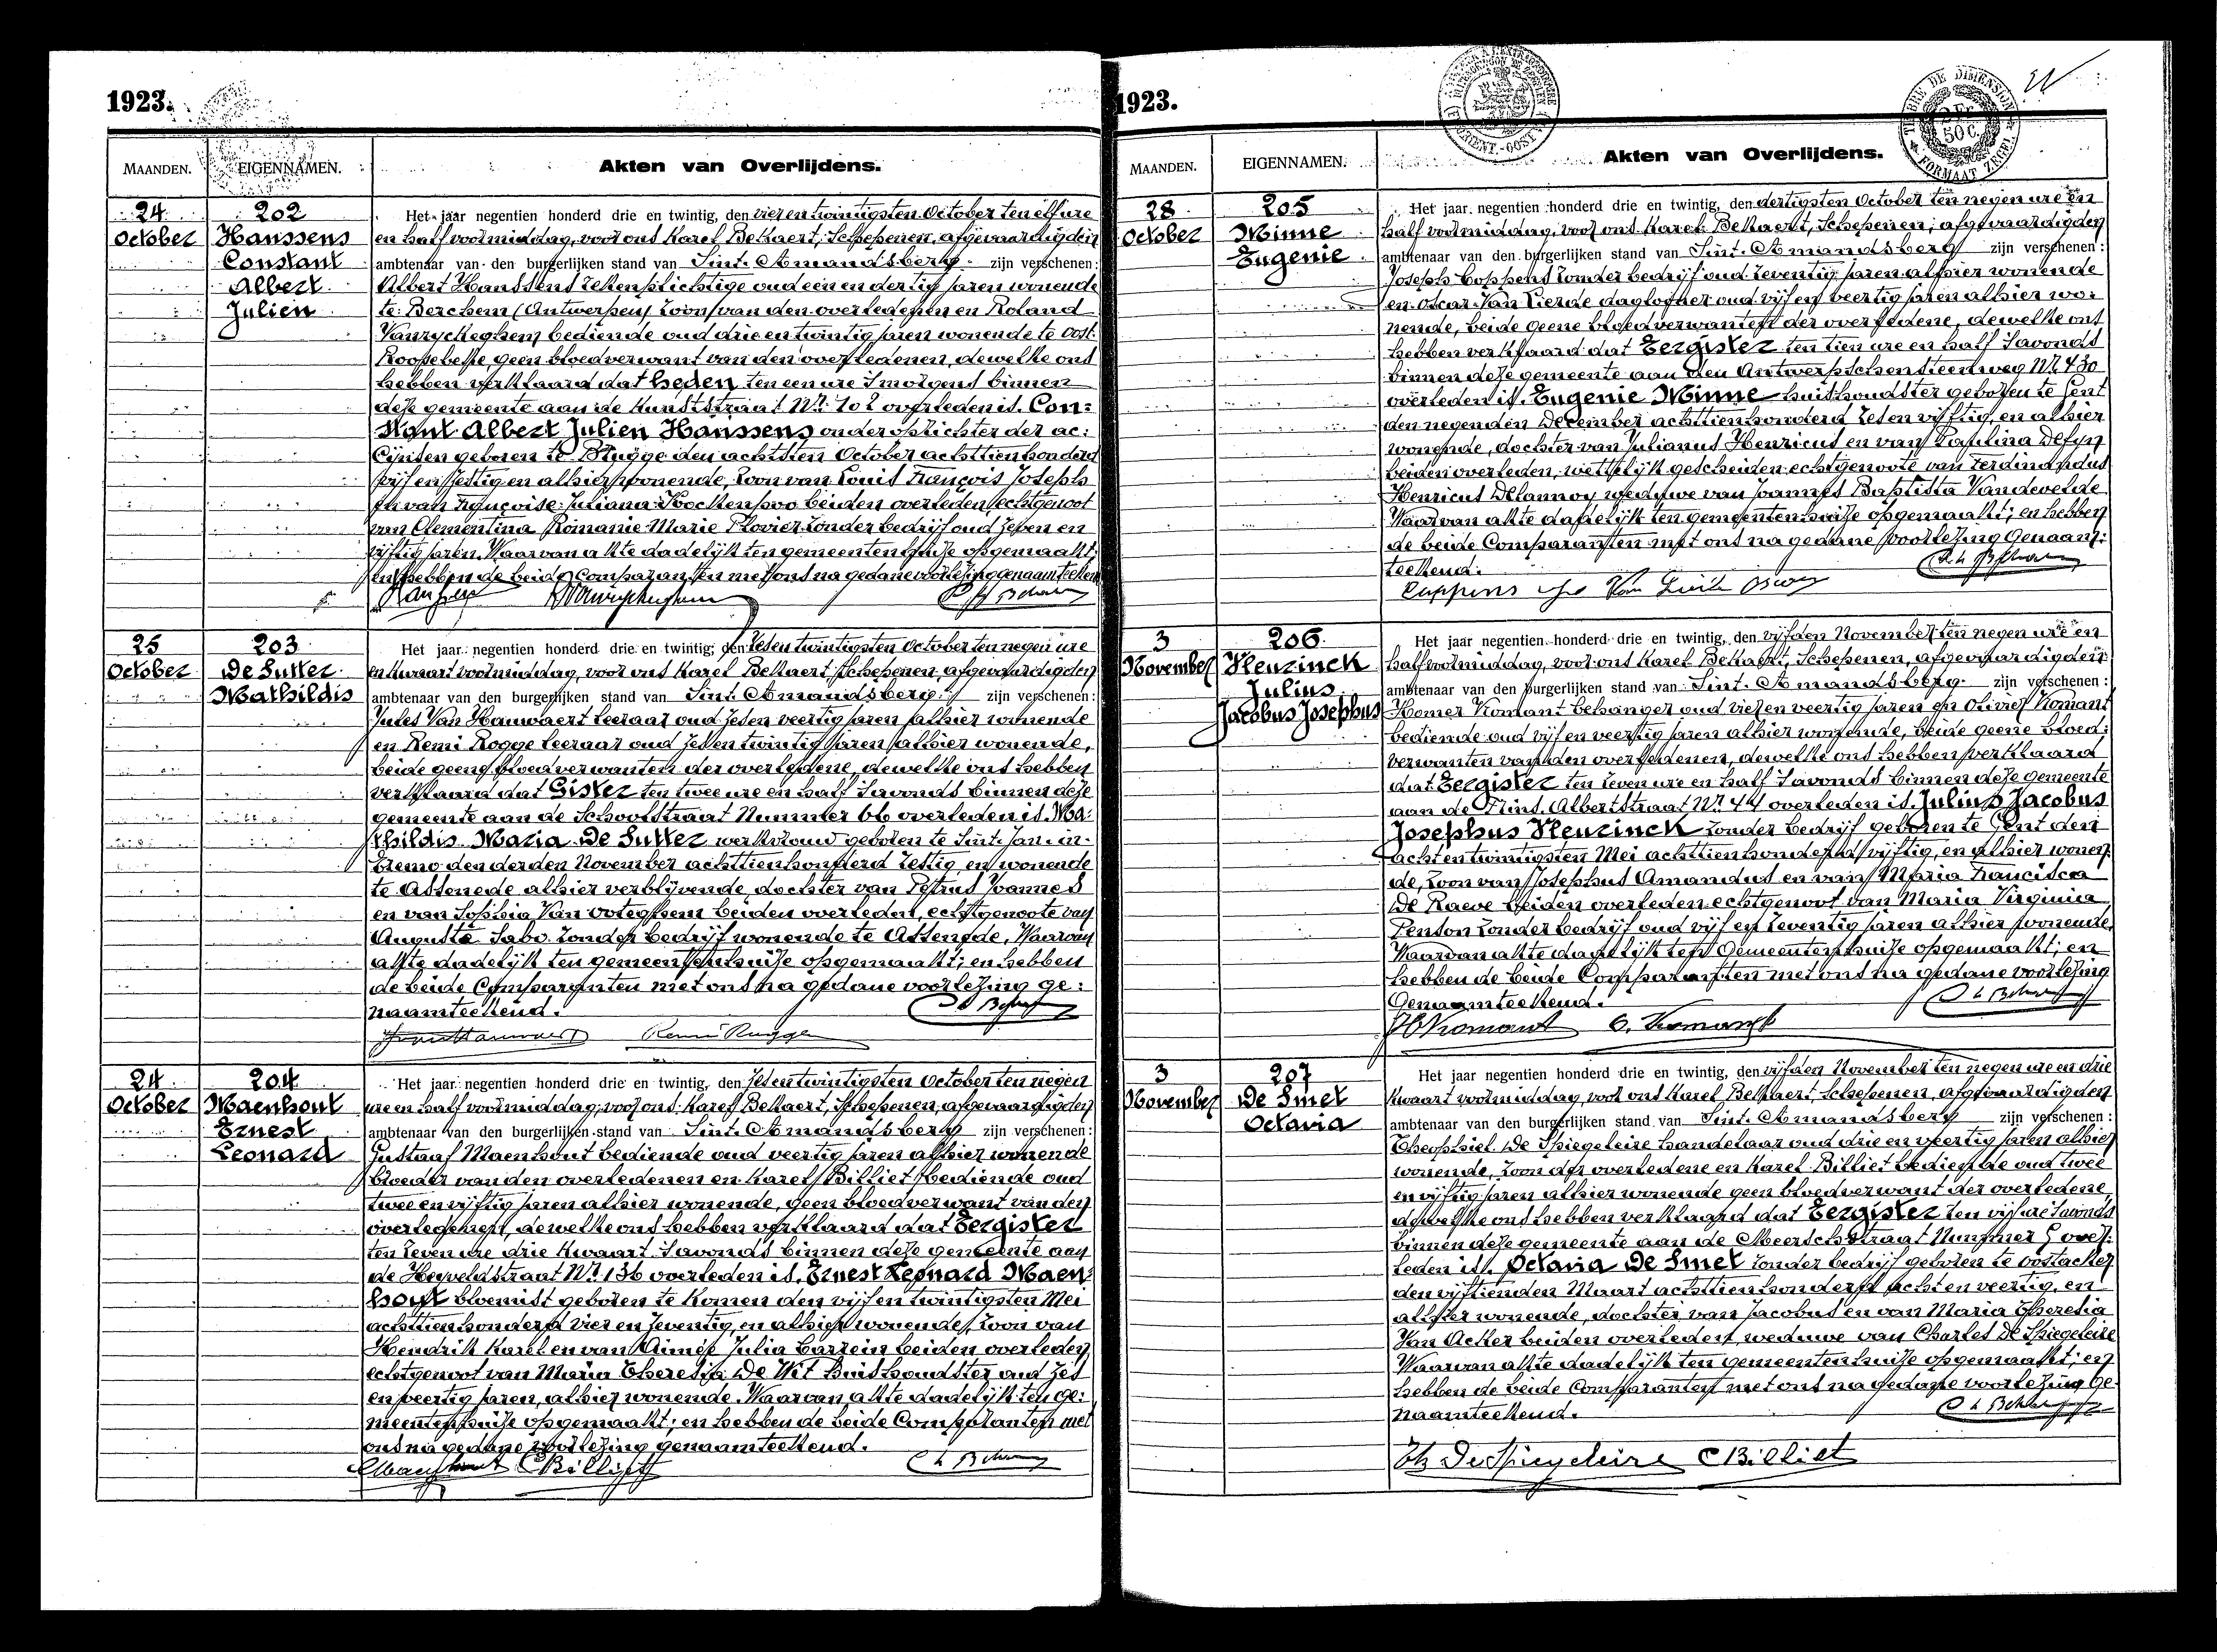 1923.
MAANDEN. EIGENNAMEN. Akten van Overlijdens.
24 October
202
Hanssens
Constant
Albert
Julien
Het jaar negentien honderd drie en twintig, den vier en twintigsten October ten elf ure
en half voormiddag, voor ons Karel Bekaert, Schepenen, afgevaardigden
ambtenaar van den burgerlijken stand van Sint. Amandsberg zijn verschenen:
Albert Hanssens zeeenplichtige oud een en dertig jaren wonende
te Berchem (Antwerpen) zoon van den overledenen en Roland
Vanryckeghem bediende oud drie en twintig jaren wonende te Oost-
Roosebeke, geen bloedverwant van den overledenen, dewelke ons
hebben verklaard dat heden ten een ure 's morgens binnen
deze gemeente aan de Kunststraat Nr. 102 overleden is. Con:
stant Albert Julien Hanssens onderoprichter der ac:
cijnsen geboren te Brugge den achttien October achttien honderd
vijf en zestig en alhier wonende, zoon van Louis François Joseph
en van Françoise Juliana beiden overleden echtgenoot
van Clementina Romanie Marie Plovier zonder bedrijf oud zeven en
vijftig jaren. Waarvan akte dadelijk ten gemeentenhuize opgemaakt;
en hebben de beide Comparanten met ons na gedane voorlezing genaamteekend
25 October
203
De Sutter
Mathildis
Het jaar negentien honderd drie en twintig, den zes en twintigsten October ten negen ure
en kwaart voormiddag, voor ons Karel Bekaert, Schepenen, afgevaardigden
ambtenaar van den burgerlijken stand van Sint. Amandsberg zijn verschenen:
Jules Van Hauwaert leeraar oud zes en veertig jaren alhier wonende
en Remi Rogge leeraar oud zes en twintig jaren alhier wonende,
beide geene bloedverwanten der overledene, dewelke ons hebben
verklaard dat Gister ten twee ure en half 's avonds binnen deze
gemeente aan de Schoolstraat Nummer 66 overleden is. Ma:
thildis Maria De Sutter werkvrouw geboren te Sint. Jan-in-
Eremo den derden November achttien honderd zestig en wonende
te Assenede alhier verblijvende, dochter van Petrus Joannes
en van Sophia Van Ooteghem beiden overleden, echtgenoote van
Auguste Sabo zonder bedrijf wonende te Assenede, Waarvan
akte dadelijk ten gemeentenhuize opgemaakt; en hebben
de beide Comparanten met ons na gedane voorlezing ge:
naamteekend.
Remi Rogge
24 October
204
Maenhout
Ernest
Leonard
Het jaar negentien honderd drie en twintig, den zes en twintigsten October ten negen
ure en half voormiddag, voor ons Karel Bekaert, Schepenen, afgevaardigden
ambtenaar van den burgerlijken stand van Sint. Amandsberg zijn verschenen:
Gustaaf Maenhout bediende oud veertig jaren alhier wonende
broeder van den overledenen en Karel Billiet bediende oud
twee en vijftig jaren alhier wonende, geen bloedverwant van den
overledenen, dewelke ons hebben verklaard dat Eergister
ten zeven ure drie kwaart 's avonds binnen deze gemeente aan
de Heyveldstraat Nr. 136 overleden is. Ernest Leonard Maen:
hout bloemist geboren te Komen den vijf en twintigsten Mei
achttien honderd vier en zeventig, en alhier wonende, zoon van
Hendrik Karel en van Aimée Julia Carrein beiden overleden
echtgenoot van Maria Theresia De Wit huishoudster oud zes
en veertig jaren, alhier wonende. Waarvan akte dadelijk ten ge:
meentenhuize opgemaakt; en hebben de beide Comparanten met
ons na gedane voorlezing genaamteekend.
Maenhout CBilliet
1923.
MAANDEN. EIGENNAMEN. Akten van Overlijdens.
28 October
205
Minne
Eugenie
Het jaar negentien honderd drie en twintig, den dertigsten October ten negen ure en
half voormiddag, voor ons Karel Bekaert, Schepenen, afgevaardigden
ambtenaar van den burgerlijken stand van Sint. Amandsberg zijn verschenen:
Joseph Coppens zonder bedrijf oud zeventig jaren alhier wonende
en Oscar Van Lierde daglooner oud vijf en veertig jaren alhier wo:
nende, beide geene bloedverwanten der overledene, dewelke ons
hebben verklaard dat Eergister ten tien ure en half 's avonds
binnen deze gemeente aan den Antwerpschensteenweg Nr. 430
overleden is. Eugenie Minne huishoudster geboren te Gent
den negenden December achttien honderd zes en vijftig, en alhier
wonende, dochter van Julianus Henricus en van Paulina Defyn
beiden overleden, wettelijk gescheiden echtgenoote van Ferdinandus
Henricus Delannoy weduwe van Joannes Baptista Vandevelde
Waarvan akte dadelijk ten gemeentenhuize opgemaakt; en hebben
de beide Comparanten met ons na gedane voorlezing Genaam:
teekend.
3 November
206
Heuzinck
Julius
Jacobus Josephus
Het jaar negentien honderd drie en twintig, den vijfden November ten negen ure en
half voormiddag, voor ons Karel Bekaert, Schepenen, afgevaardigden
ambtenaar van den burgerlijken stand van Sint. Amandsberg zijn verschenen:
Homer Kromant behanger oud vier en veertig jaren en Olivier Kromant
bediende oud vijf en veertig jaren alhier wonende, beide geene bloed:
verwanten van den overledenen, dewelke ons hebben verklaard
dat Eergister ten zeven ure en half 's avonds binnen deze gemeente
aan de Prins Albertstraat Nr. 44 overleden is. Julius Jacobus
Josephus Heuzinck zonder bedrijf geboren te Gent den
acht en twintigsten Mei achttien honderd vijftig, en alhier wonen:
de, zoon van Josephus Amandus en van Maria Francisca
De Raeve beiden overleden echtgenoot van Maria Virginia
Penson zonder bedrijf oud vijf en zeventig jaren alhier wonende,
Waarvan akte dadelijk ten Gemeentenhuize opgemaakt; en
hebben de beide Comparanten met ons na gedane voorlezing
Genaamteekend.
HKromant O. Kromant
3 November
207
De Smet
Octavia
Het jaar negentien honderd drie en twintig, den vijfden November ten negen ure en drie
kwaart voormiddag, voor ons Karel Bekaert, Schepenen, afgevaardigden
ambtenaar van den burgerlijken stand van Sint. Amandsberg zijn verschenen:
Theophiel De Spiegeleire handelaar oud drie en veertig jaren alhier
wonende, zoon der overledene en Karel Billiet bediende oud twee
en vijftig jaren alhier wonende geen bloedverwant der overledene,
dewelke ons hebben verklaard dat Eergister ten vijf ure 's avonds
binnen deze gemeente aan de Meerschstraat Nummer 5 over:
leden is. Octavia De Smet zonder bedrijf geboren te Oostacker
den vijftienden Maart achttien honderd acht en veertig, en
alhier wonende, dochter van Jacobus en van Maria Theresia
Van Acker beiden overleden, weduwe van Charles De Spiegeleire
Waarvan akte dadelijk ten gemeentenhuize opgemaakt; en
hebben de beide Comparanten met ons na gedane voorlezing ge:
naamteekend.
Th De Spiegeleire CBilliet